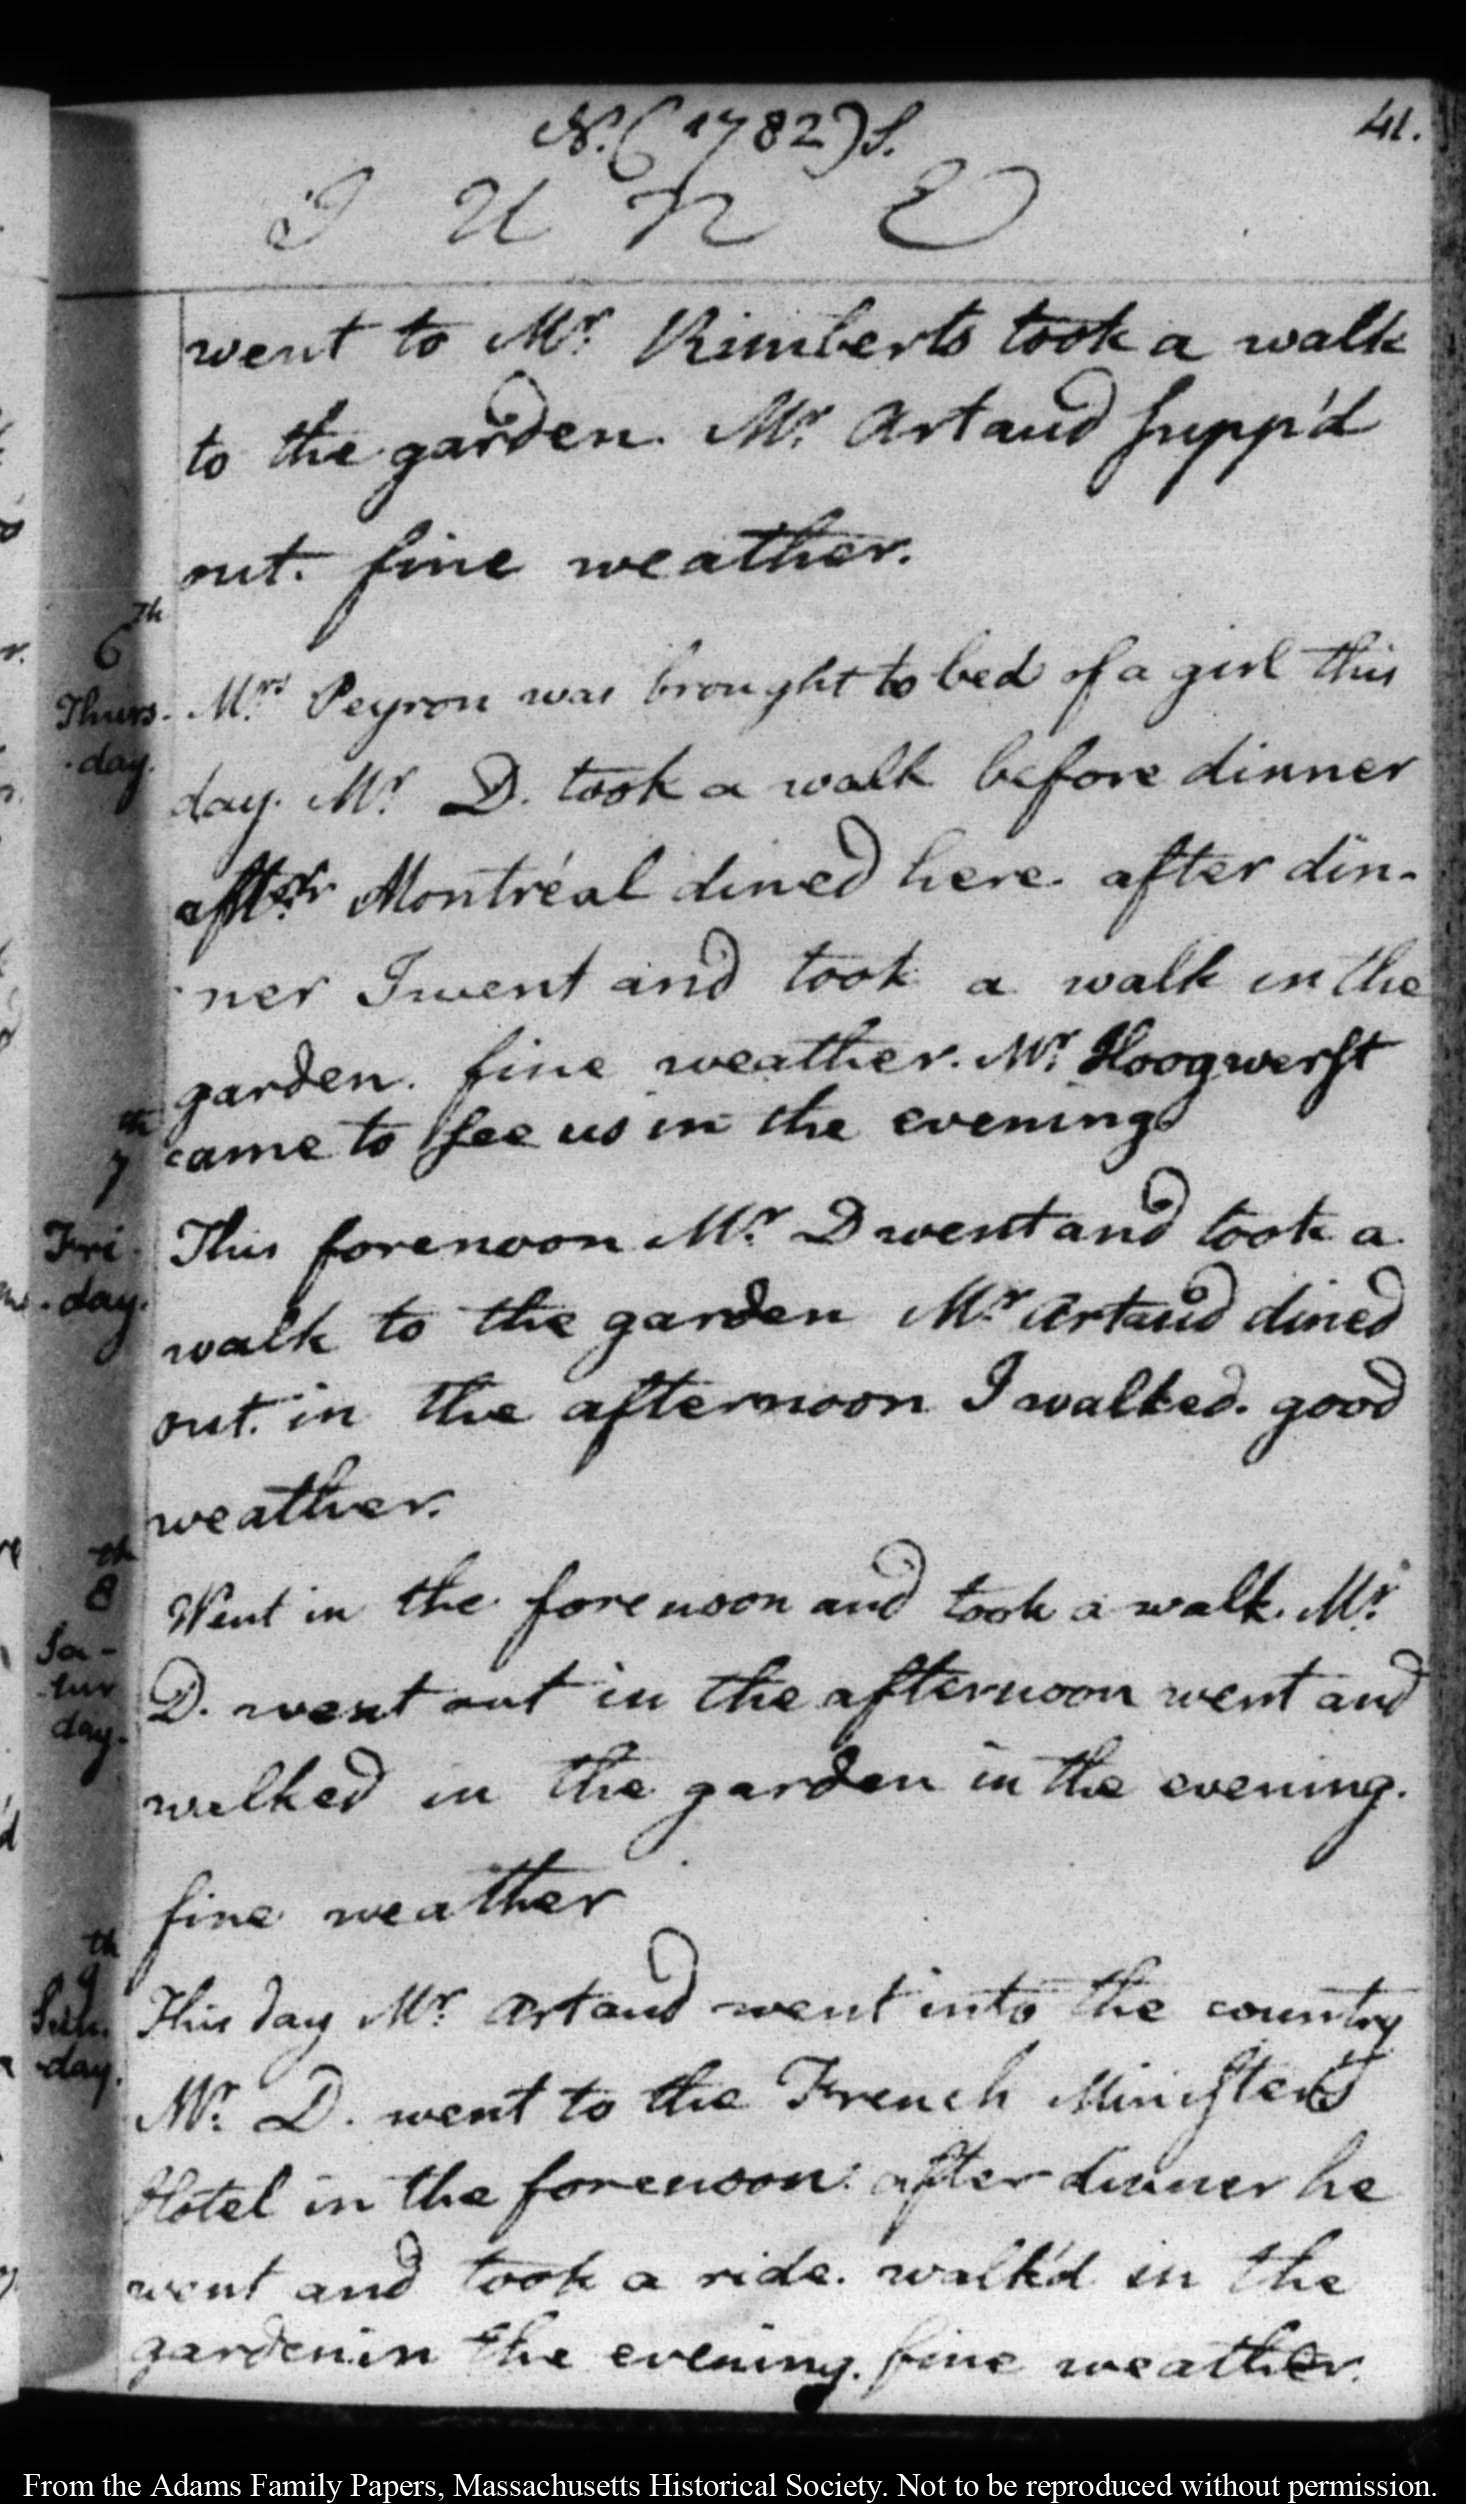 N. (1782) S.
41.
JUNE
went to Mr. Rimberts took a walk
to the garden. Mr. Artaud supp'd
out. fine weather.
6th
Thurs-
-day.
Mrs. Peyron was brought to bed of a girl this
day. Mr. D. took a walk before dinner
Montréal dined here after din-
-ner I went and took a walk in the
garden. fine weather. Mr. Hoogwerft
came to see us in the evening
7th
Fri-
-day.
This forenoon Mr. D went and took a
walk to the garden Mr. Artaud dined
out. in the afternoon I walked. good
weather.
8th
Sa-
-tur
day.
Went in the forenoon and took a walk. Mr.
D. went out in the afternoon went and
walked in the garden in the evening.
fine weather
9th
Sun-
-day.
This day Mr. Artaud went into the country
Mr. D. went to the French Ministers
Hotel in the forenoon: after dinner he
went and took a ride. walk'd in the
garden in the evening. fine weather.
From the Adams Family Papers, Massachusetts Historical Society. Not to be reproduced without permission.